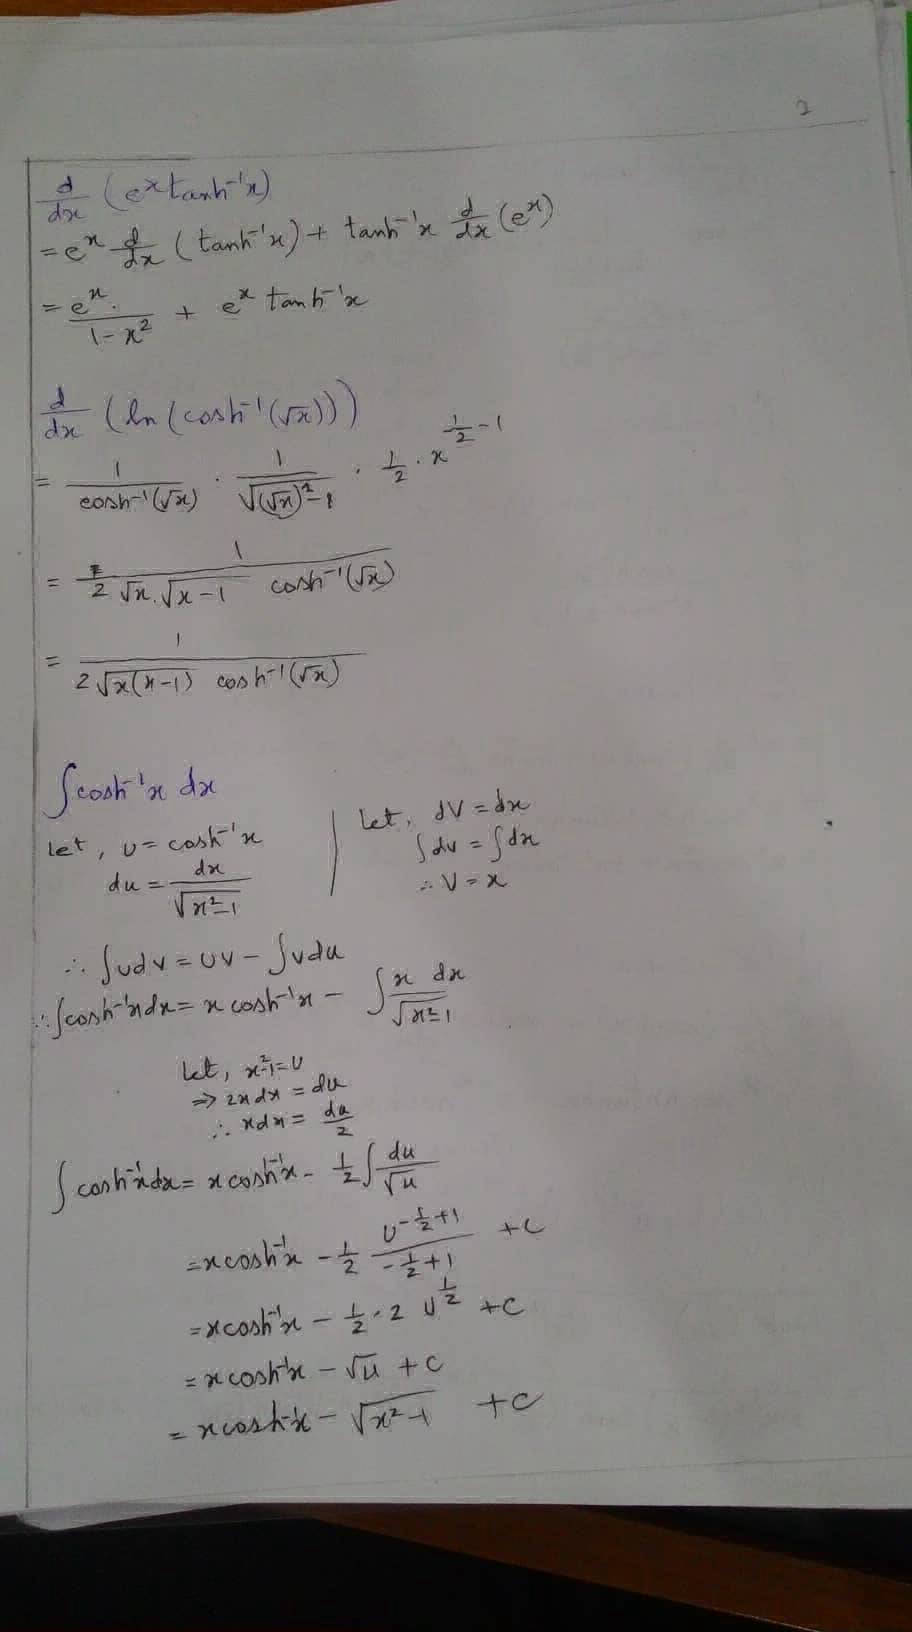 2
d/dx (eˣ tanh⁻¹x)
= eˣ d/dx (tanh⁻¹x) + tanh⁻¹x d/dx (eˣ)
= eˣ·/(1-x²) + eˣ tanh⁻¹x
d/dx (ln(cosh⁻¹(√x)))
= 1/(cosh⁻¹(√x)) · 1/√((√x)²-1) · 1/2 · x^(1/2 - 1)
= 1/(2√x.√(x-1) cosh⁻¹(√x))
= 1/(2√(x(x-1)) cosh⁻¹(√x))
∫cosh⁻¹x dx
Let, u = cosh⁻¹x | Let, dv = dx
du = dx/√(x²-1) | ∫dv = ∫dx
∴ v = x
∴ ∫udv = uv - ∫vdu
∴ ∫cosh⁻¹xdx = x cosh⁻¹x - ∫ x dx/√(x²-1)
Let, x²-1=u
⇒ 2xdx = du
∴ xdx = du/2
∫cosh⁻¹xdx = x cosh⁻¹x - 1/2 ∫ du/√u
= x cosh⁻¹x - 1/2 u^(-1/2+1)/(-1/2+1) + c
= x cosh⁻¹x - 1/2 · 2 u^(1/2) + c
= x cosh⁻¹x - √u + c
= x cosh⁻¹x - √(x²-1) + c